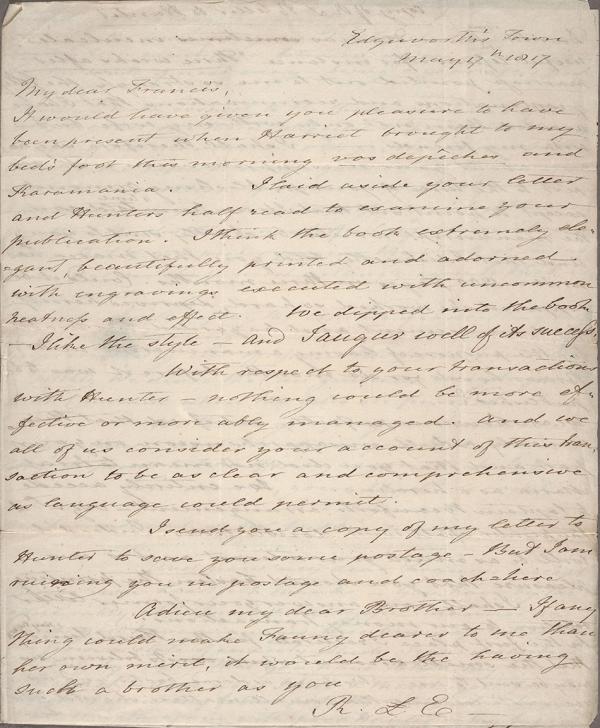 Edgworth's Town
May 17th 1817
My dear Francis,
It would have given you pleasure to have
been present when Harriet brought to my
bed's foot this morning vos depêches and
Karamania. I laid aside your letter
and Hunters half read to examine your
publication. I think the book extremely ele-
-gant, beautifully printed and adorned
with engravings executed with uncommon
neatness and effect. We dipped into the book
— I like the style — and I augur well of its success.
With respect to your transactions
with Hunter — nothing could be more ef-
fective or more ably managed. And we
all of us consider your account of this tran-
saction to be as clear and comprehensive
as language could permit.
I send you a copy of my letter to
Hunter to save you some postage — But I am
ruining you in postage and coach hire
Adieu my dear Brother — If any
thing could make Fanny dearer to me than
her own merit, it would be the having
such a brother as you
R. L E —